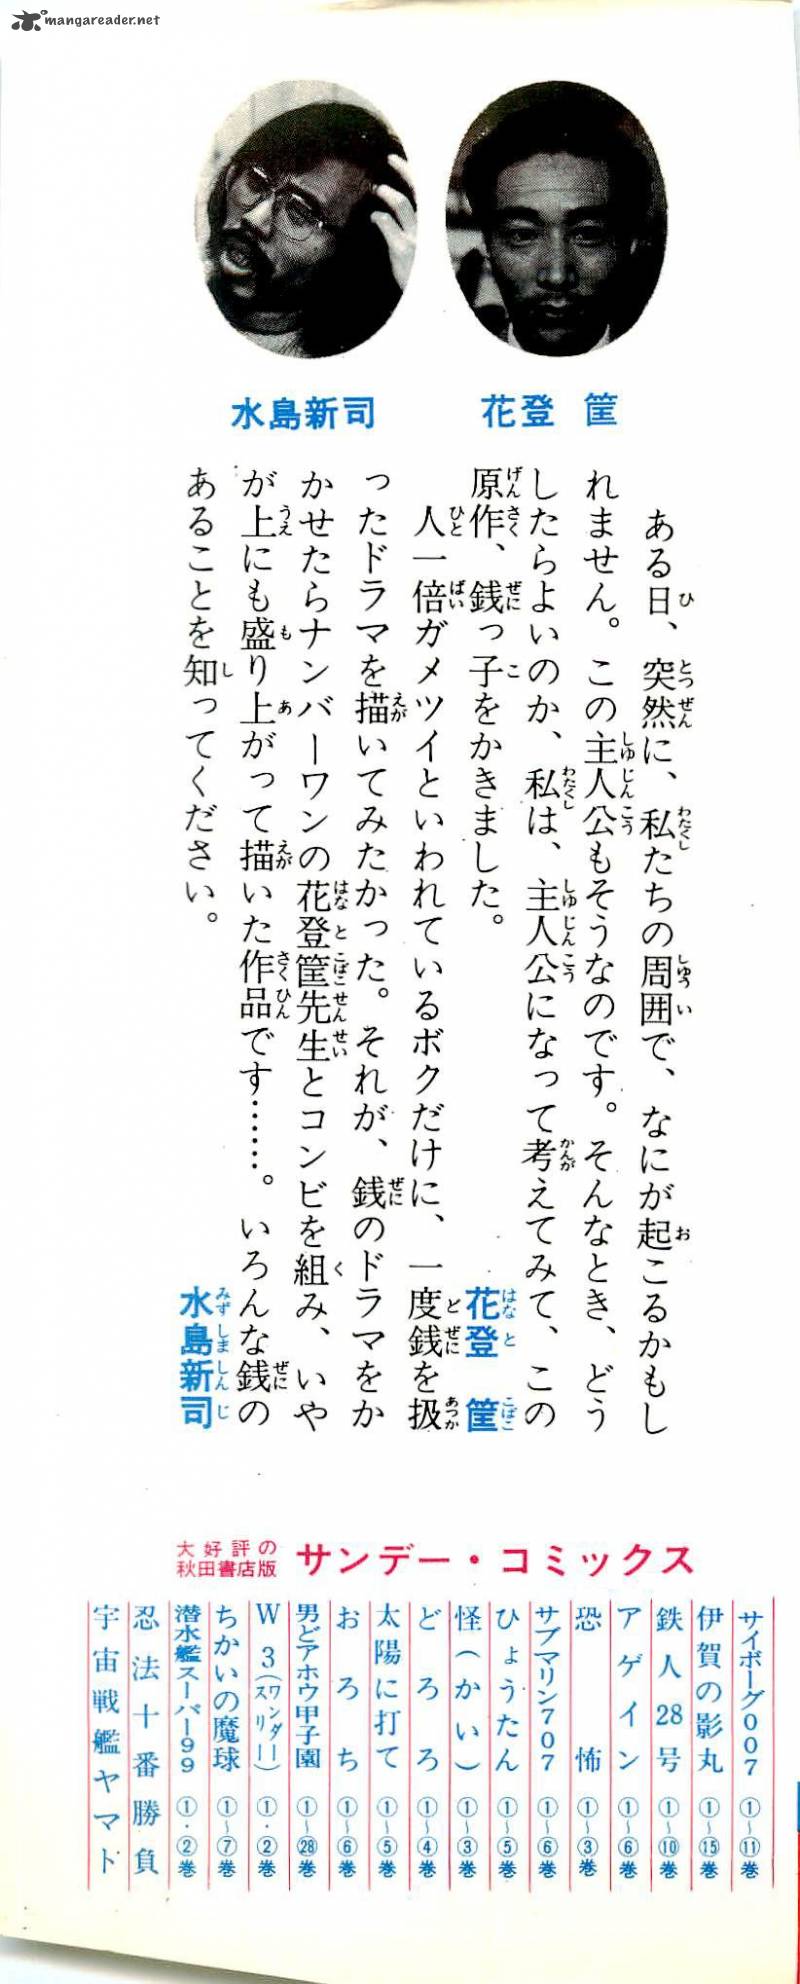 mangareader.net
花登 筐
水島新司
ある日、突然に、私たちの周囲で、なにが起こるかもし
れません。この主人公もそうなのです。そんなとき、どう
したらよいのか、私は、主人公になって考えてみて、この
原作、銭っ子をかきました。
花登 筐
人一倍ガメツイといわれているボクだけに、一度銭を扱
ったドラマを描いてみたかった。それが、銭のドラマをか
かせたらナンバーワンの花登筐先生とコンビを組み、いや
が上にも盛り上がって描いた作品です……。いろんな銭の
あることを知ってください。
水島新司
大好評の
秋田書店版
サンデー・コミックス
サイボーグ007 ①〜⑪巻
伊賀の影丸 ①〜⑮巻
鉄人28号 ①〜⑩巻
アゲイン ①〜⑥巻
恐怖 ①〜③巻
サブマリン707 ①〜⑥巻
ひょうたん ①〜⑤巻
怪(かい) ①〜③巻
どろろ ①〜④巻
太陽に打て ①〜⑤巻
おろち ①〜⑥巻
男どアホウ甲子園 ①〜㉘巻
W3(ワンダースリー) ①・②巻
ちかいの魔球 ①〜⑦巻
潜水艦スーパー99 ①・②巻
忍法十番勝負
宇宙戦艦ヤマト